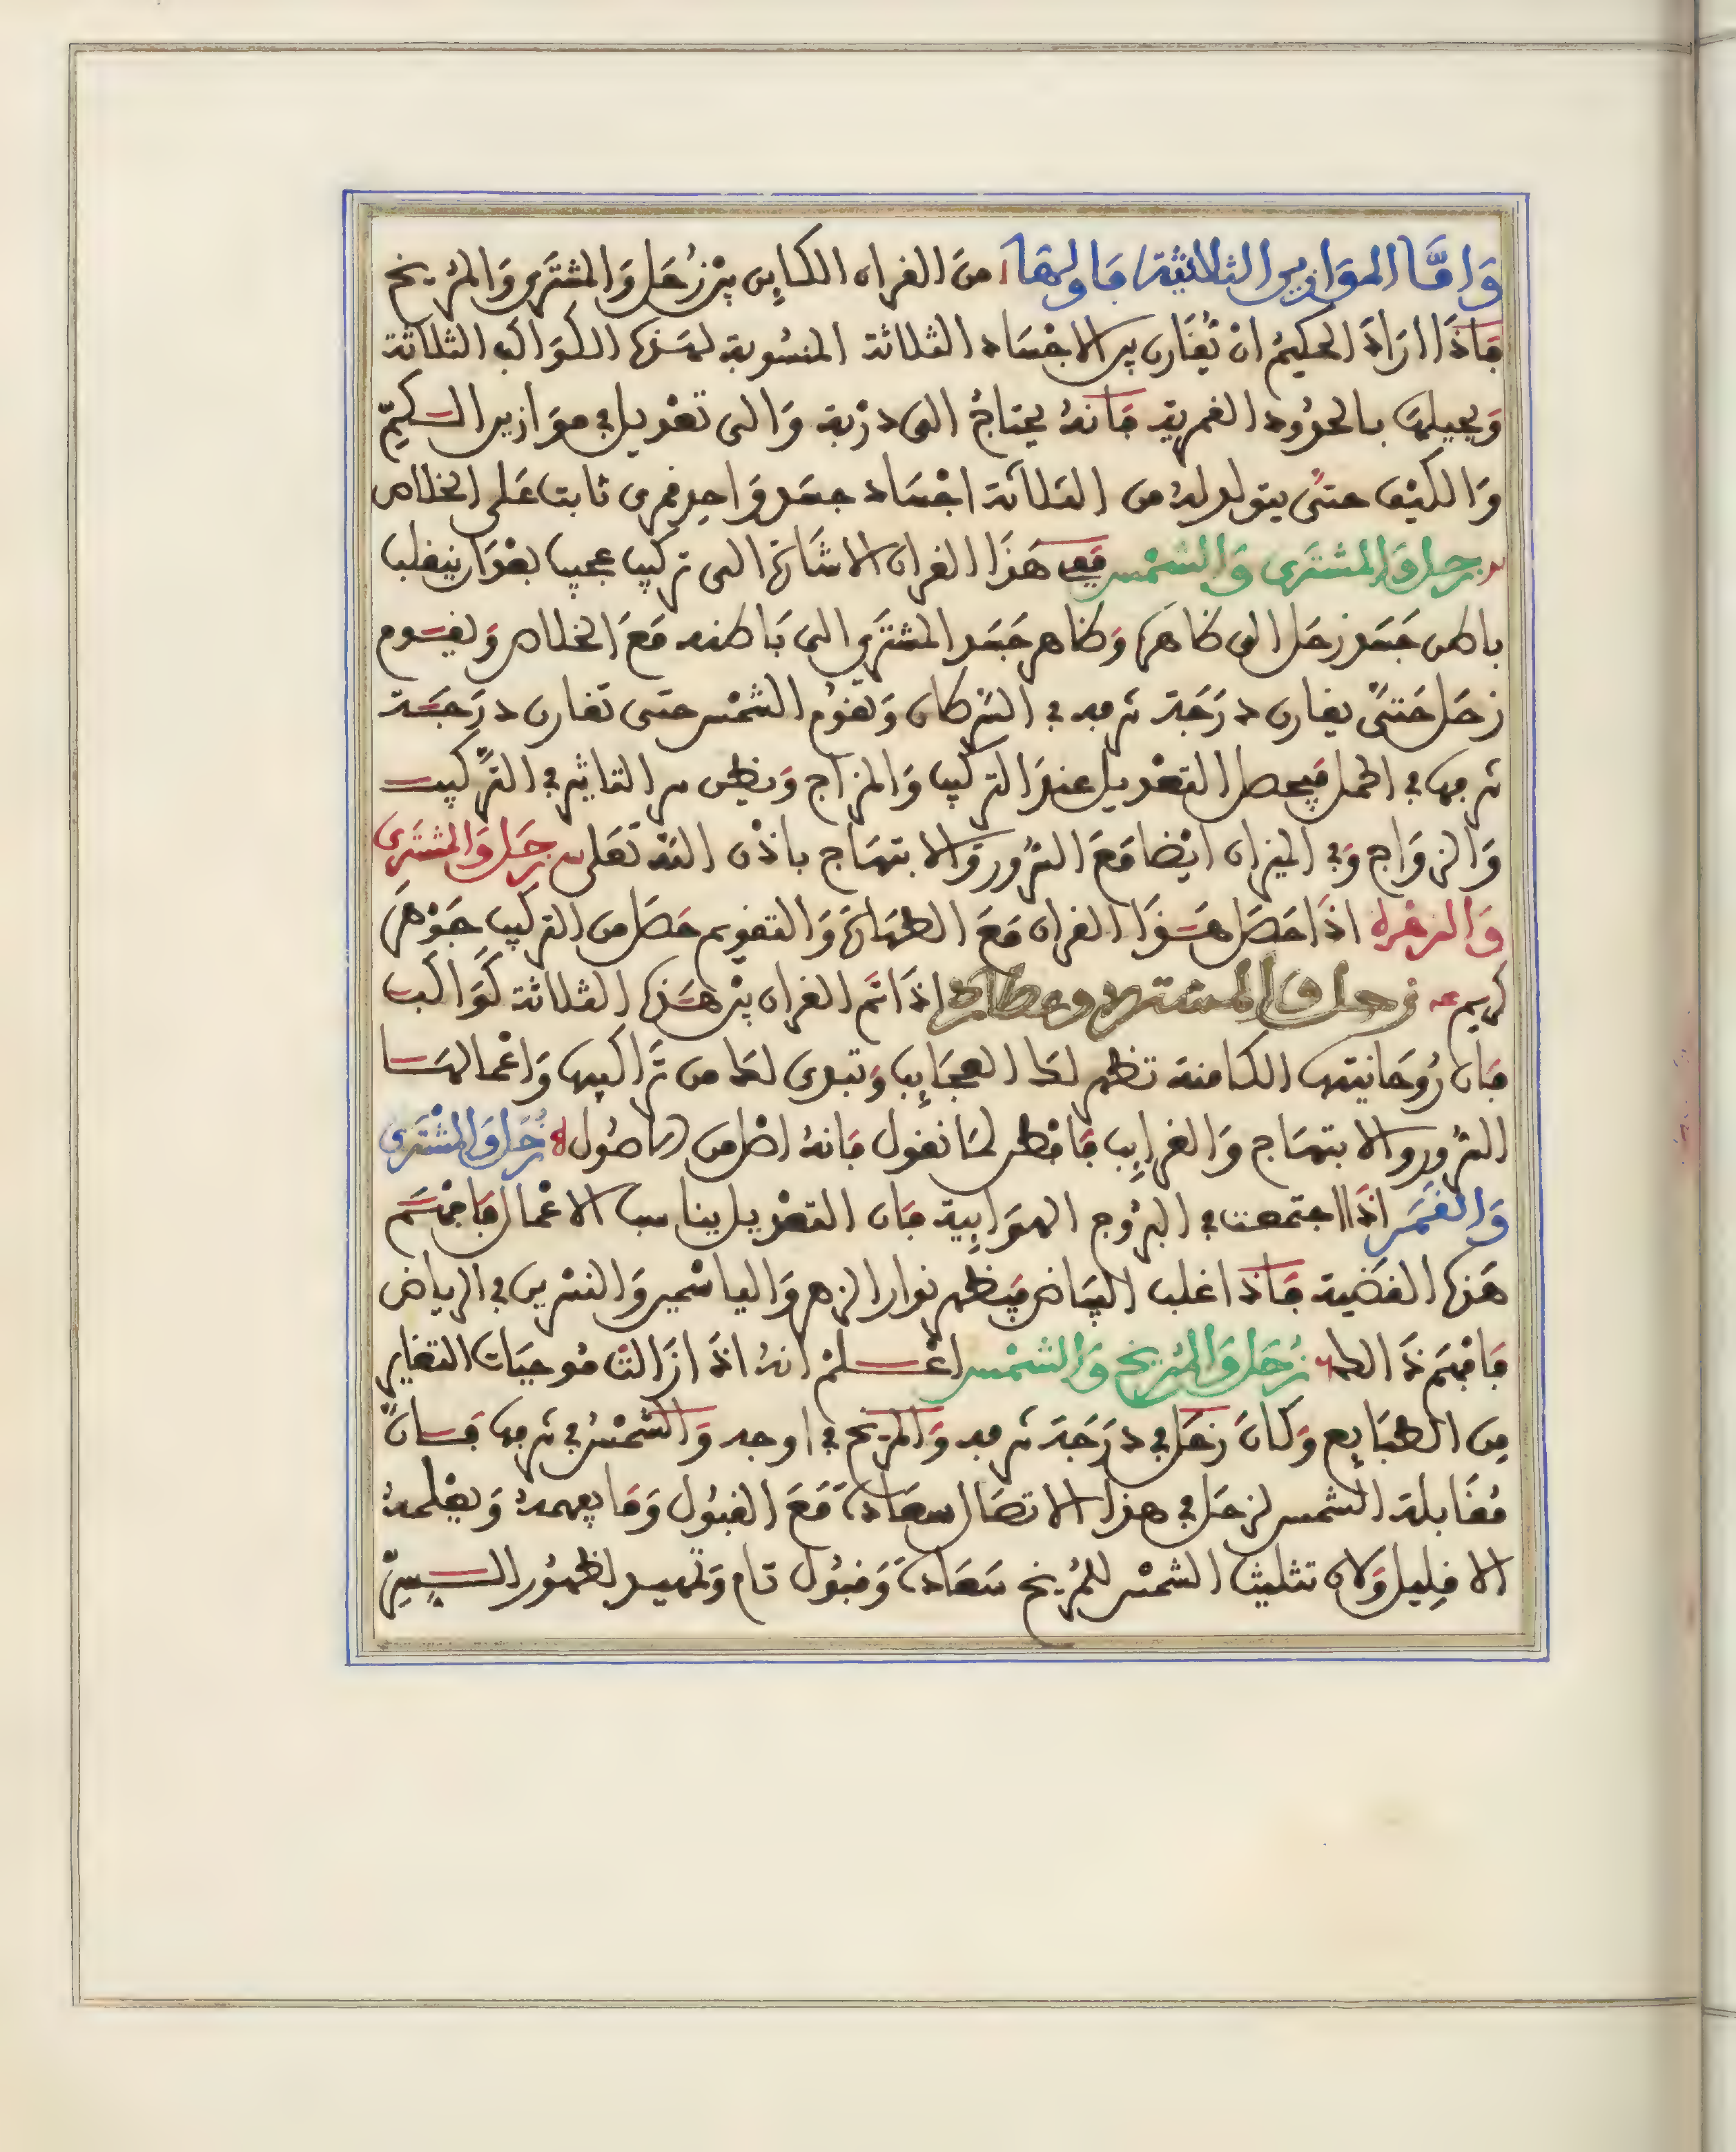 وَامَّا المَوَازين الثلاثية فَاولها مِنَ القران الكاين بيْن زُحَل وَالمشتَرى وَالمريخ
فَاذَا ارَادَ الحكيمُ انْ يُقَارن بين الاجْسَاد الثلاثة المنسُوبة لهَذه الكوَاكب الثلاثة
وَيحيلهَا بالحدُود القمرية فَانهُ يحتاجُ الى دُرْبة وَالى تعْديل في موَازين الكمِّ
وَالكيْف حتىَّ يتولد لهُ من الثلاثة اجْسَاد جسَد وَاحِد قمرى ثابت عَلى الخلاص
زحل وَالمشتَرى وَالشمْس فَفي هَذَا القران الاشَارَة الى تركيب عجيب بعْدَ ان ينقلب
باطن جَسَد زحَل الى ظاهره وَظاهر جَسَد المشتَرِي الى بَاطنه مَعَ الخلاص وَيقـوم
زحَل حَتىَّ يقارن درَجَة شرفه في السَرطان وَتقومُ الشمْس حتى تقارن درَجَـة
شرفها في الحمل فيحصل التعْديل عندَ التركيب وَالمزاج وَيظهر سر التاثير في التَّركيب
وَالزوَاج وَفي الميزان ايْضا مَعَ السُّرور وَالابتهَاج باذْن الله تَعَلى زحَل وَالمشتَرى
وَالزهْرة اذَا حَصَل هَـذَا القران مَعَ الطهَارَة وَالتقويم حَصَل من التركيب جَوْهَر
كريم زحل والمشترى وعطارد اذَا تَم القران بيْن هَـذه الثلاثة كَوَاكب
فَان رُوحَانيتها الكامنة تظهر لكَ العجَايِب وَتبدى لكَ من تَرَاكيبها وَاعْمالهَـا
السُّرور والابتهَاج وَالغرايِب فَافطن لمَا نقول فَانهُ اصْل من الاصُول زُحَل وَالمشْتَرى
وَالقَمَر اذَا اجتمعت في البرُوج الهوَايِية فَان التعْديل يناسب الاعْمال فَافهَـم
هَذه القضَية فَاذا غلب البيَاض فيَظهر نوار الزهر وَالياسْمير وَالنسْرين في الرياض
فَافهَم ذَالك زُحَل وَالمُريخ وَالشمْس اعْـلمْ انهُ اذَا زَالتْ مُوجبَات التغاير
مِن الطبَايِع وَكانَ زحَل في درَجَة شرفه وَالمريخ في اوجه وَالشمْسُ في شرفها فـانَّ
مُقَابلة الشمس لزحَل في هذا الاتصَال سعَادة مَعَ القبُول وَمَا يفهمهُ وَيعْلمهُ
الا قلِيل وَلان تثليث الشمْس للمُريخ سَعَادة وَقبُول تام وَتمهيـد لظهُور السِـرِّ